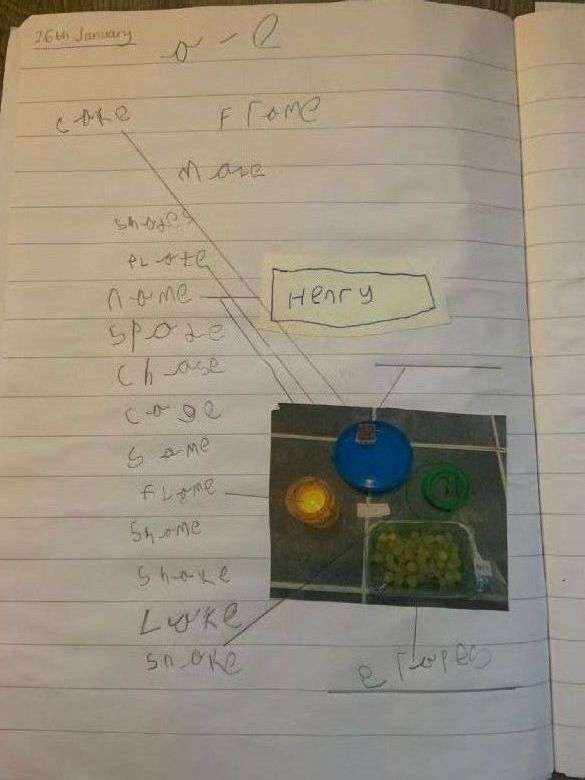 26th January
a - e
cake Frame
Plate
name Henry
spade
Chase
cage
same
Flame
Shame
Shake
Lake
Snake
grapes